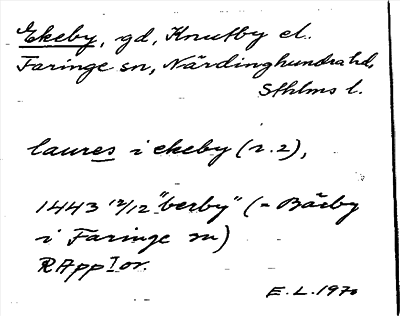 Ekeby, gd, Knutby el.
Faringe sn, Närdinghundra hd,
Sthlms l.
laures i ekeby (r. 2),
1443 12/12 "berby" (= Bärby
i Faringe sn)
RApp I or.
E.L. 1970